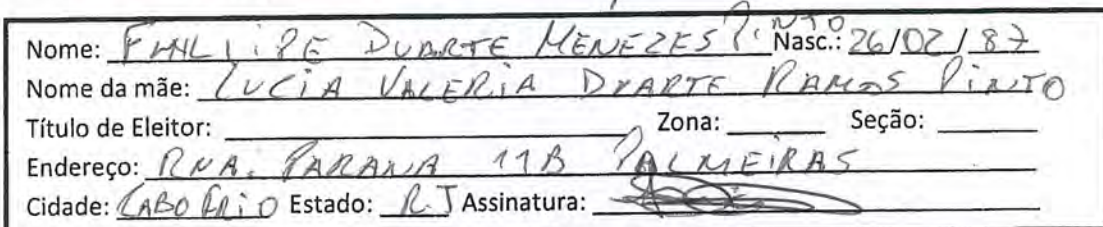 Nome: FHILIPE DUARTE MENEZES PINTO Nasc.: 26/02/87
Nome da mãe: LUCIA VALERIA DUARTE RAMOS PINTO
Título de Eleitor: Zona: Seção:
Endereço: RUA. PARANA 11B PALMEIRAS
Cidade: CABO FRIO Estado: R.J Assinatura: